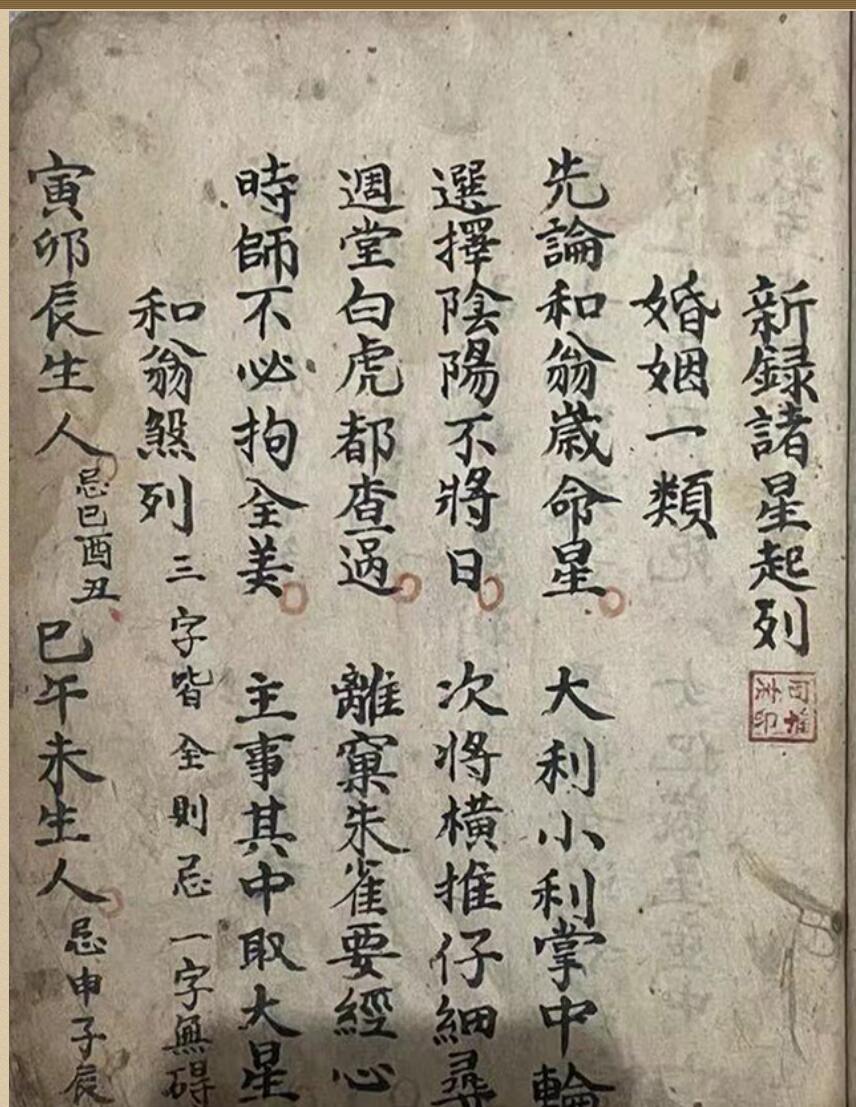 新録諸星起列
婚姻一類
先論和翁歲命星 大利小利掌中輪
選擇陰陽不將日 次將橫推仔細尋
週堂白虎都查過 離窠朱雀要經心
時師不必拘全美 主事其中取大星
和翁煞列 三字皆全則忌一字無碍
寅卯辰生人 忌巳酉丑 巳午未生人 忌申子辰